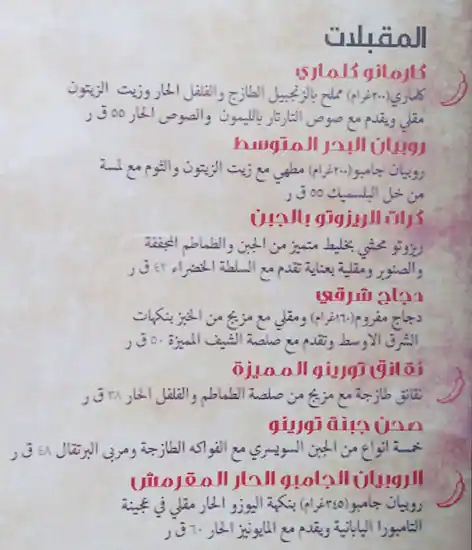 المقبلات
كارمانو كلماري
كلماري(٢٠٠غرام) مملح بالزنجبيل الطازج والفلفل الحار وزيت الزيتون
مقلي ويقدم مع صوص التارتار بالليمون والصوص الحار ٥٥ ق ر
روبيان البحر المتوسط
روبيان جامبو(٢٠٠غرام) مطهي مع زيت الزيتون والثوم مع لمسة
من خل البلسميك ٥٥ ق ر
كرات الريزوتو بالجبن
ريزوتو محشي بخليط متميز من الجبن والطماطم المجففة
والصنوبر ومقلية بعناية تقدم مع السلطة الخضراء ٤٢ ق ر
دجاج شرقي
دجاج مفروم(١٦٠غرام) ومقلي مع مزيج من الخبز بنكهات
الشرق الاوسط وتقدم مع صلصة الشيف المميزة ٥٠ ق ر
نقانق تورينو المميزة
نقانق طازجة مع مزيج من صلصة الطماطم والفلفل الحار ٣٨ ق ر
صحن جبنة تورينو
خمسة انواع من الجبن السويسري مع الفواكه الطازجة ومربى البرتقال ٤٨ ق ر
الروبيان الجامبو الحار المقرمش
روبيان جامبو(٣٤٥غرام) بنكهة اليوزو الحار مقلي في عجينة
التامبورا اليابانية ويقدم مع المايونيز الحار ٦٠ ق ر